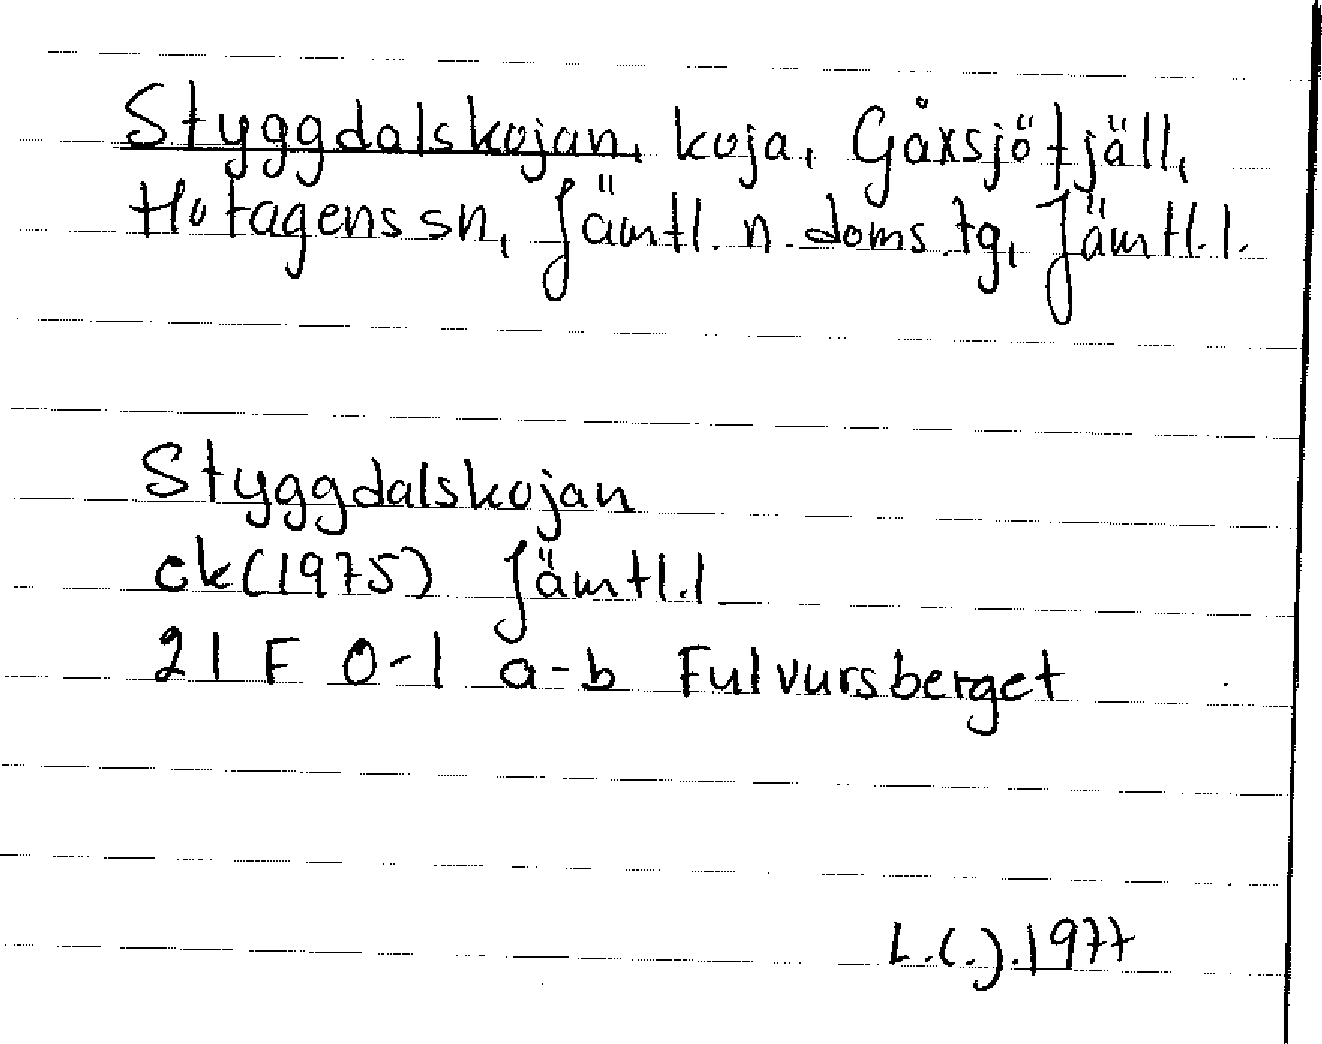 Styggdalskojan, koja, Gåxsjöfjäll,
Hotagens sn, Jämtl. n. doms.tg, Jämtl.l.
Styggdalskojan
ek(1975) Jämtl.l
21 F 0-1 a-b Fulvursberget
L.C.J.1977